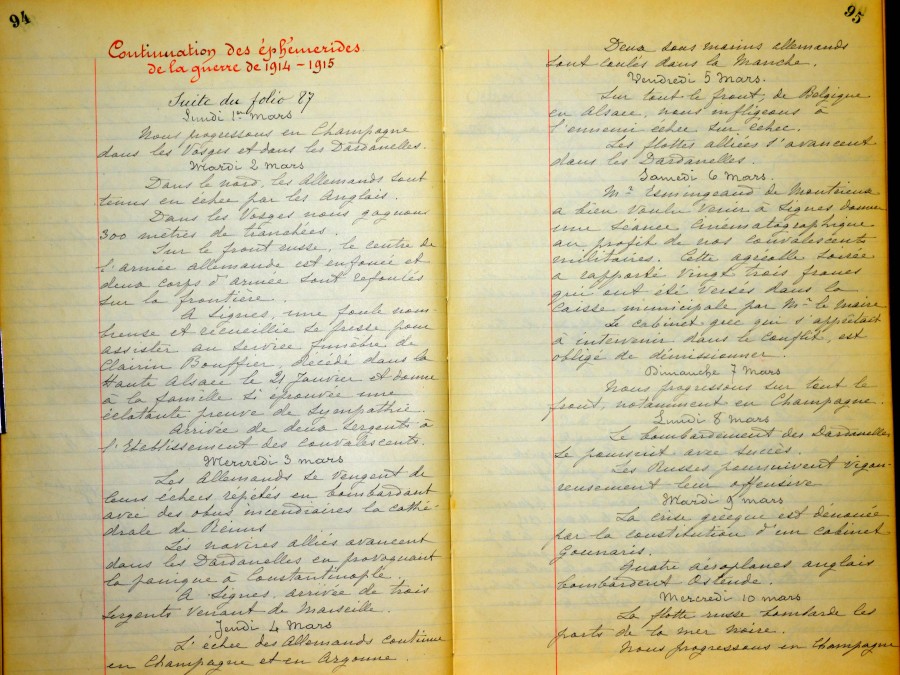 94
Continuation des éphémerides
de la guerre de 1914 - 1915
Suite du folio 87
Lundi 1er Mars
Nous progressons en Champagne
dans les Vosges et dans les Dardanelles.
Mardi 2 Mars
Dans le nord, les Allemands sont
tenus en échec par les Anglais.
Dans les Vosges nous gagnons
300 mètres de tranchées.
Sur le front russe, le centre de
l'armée allemande est enfoncé et
deux corps d'armée sont refoulés
sur la frontière.
A Signes, une foule nom-
breuse et recueillie se presse pour
assister au service funèbre de
Clairin Bouffier, décédé dans la
Haute Alsace le 21 Janvier et donne
à la famille si éprouvée une
éclatante preuve de sympathie.
Arrivée de deux sergents à
l'Etablissement des convalescents.
Mercredi 3 mars
Les Allemands se vengent de
leurs échecs répétés en bombardant
avec des obus incendiaires la cathé-
drale de Reims
Les navires alliés avancent
dans les Dardanelles en provoquant
la panique à Constantinople.
A Signes, arrivée de trois
sergents venant de Marseille.
Jeudi 4 Mars
L'échec des Allemands continue
en Champagne et en Argonne.
95
Deux sous marins allemands
sont coulés dans la Manche.
Vendredi 5 Mars.
Sur tout le front, de Belgique
en Alsace, nous infligeons à
l'ennemi échec sur échec.
Les flottes alliées s'avancent
dans les Dardanelles.
Samedi 6 Mars.
Mr de Montrieux
a bien voulu venir à Signes donner
une séance cinématographique
au profit de nos convalescents
militaires. Cette agréable soirée
a rapporté vingt trois francs
qui ont été versés dans la
caisse municipale par Mr le Maire
Le cabinet grec qui s'apprêtait
à intervenir dans le conflit, est
obligé de démissionner.
Dimanche 7 Mars
Nous progressons sur tout le
front, notamment en Champagne.
Lundi 8 Mars
Le bombardement des Dardanelles
se poursuit avec succès.
Les Russes poursuivent vigou-
reusement leur offensive
Mardi 9 Mars
La crise grecque est dénouée
par la constitution d'un cabinet
Gounaris.
Quatre aéroplanes anglais
bombardent Ostende.
Mercredi 10 mars
La flotte russe bombarde les
ports de la mer noire.
Nous progressons en Champagne